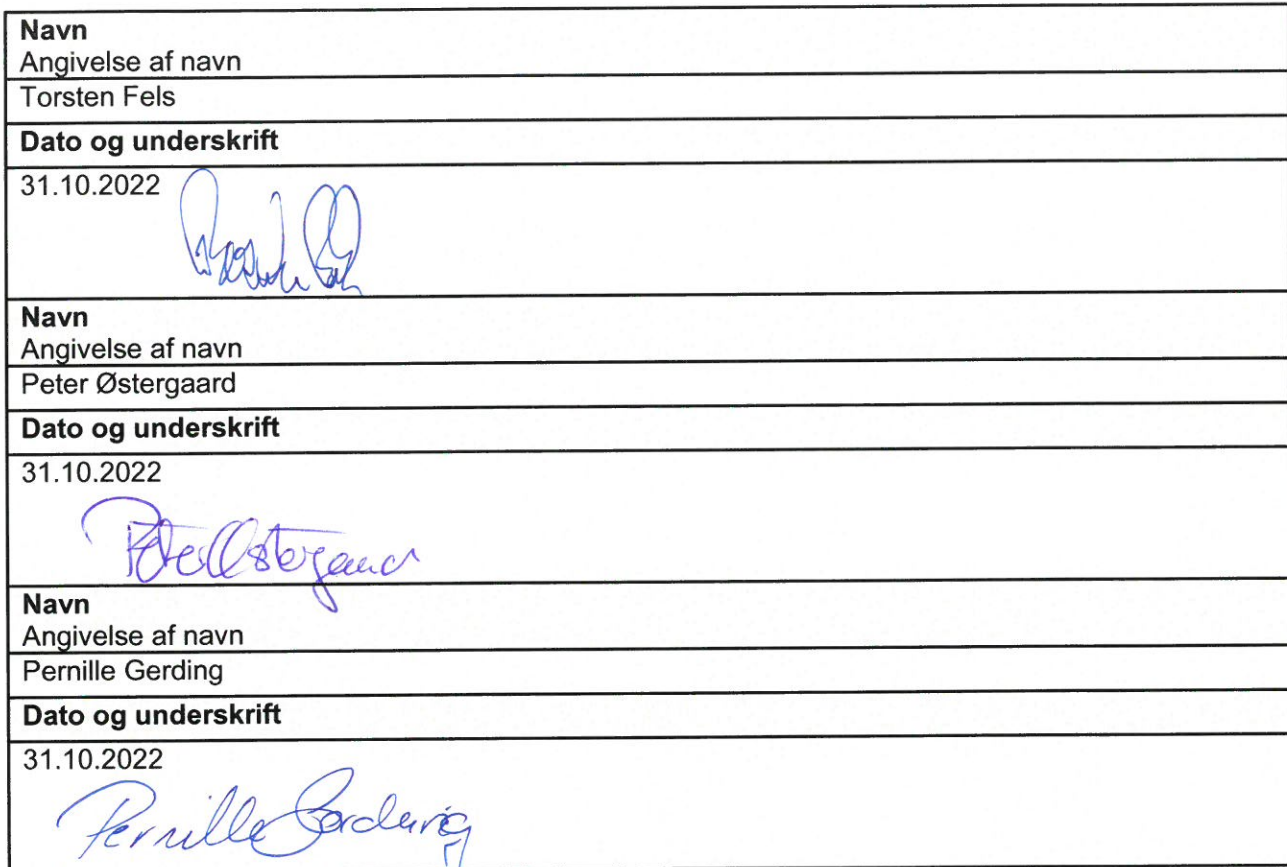 Navn
Angivelse af navn
Torsten Fels
Dato og underskrift
31.10.2022
Navn
Angivelse af navn
Peter Østergaard
Dato og underskrift
31.10.2022
Peter Østergaard
Navn
Angivelse af navn
Pernille Gerding
Dato og underskrift
31.10.2022
Pernille Gerding